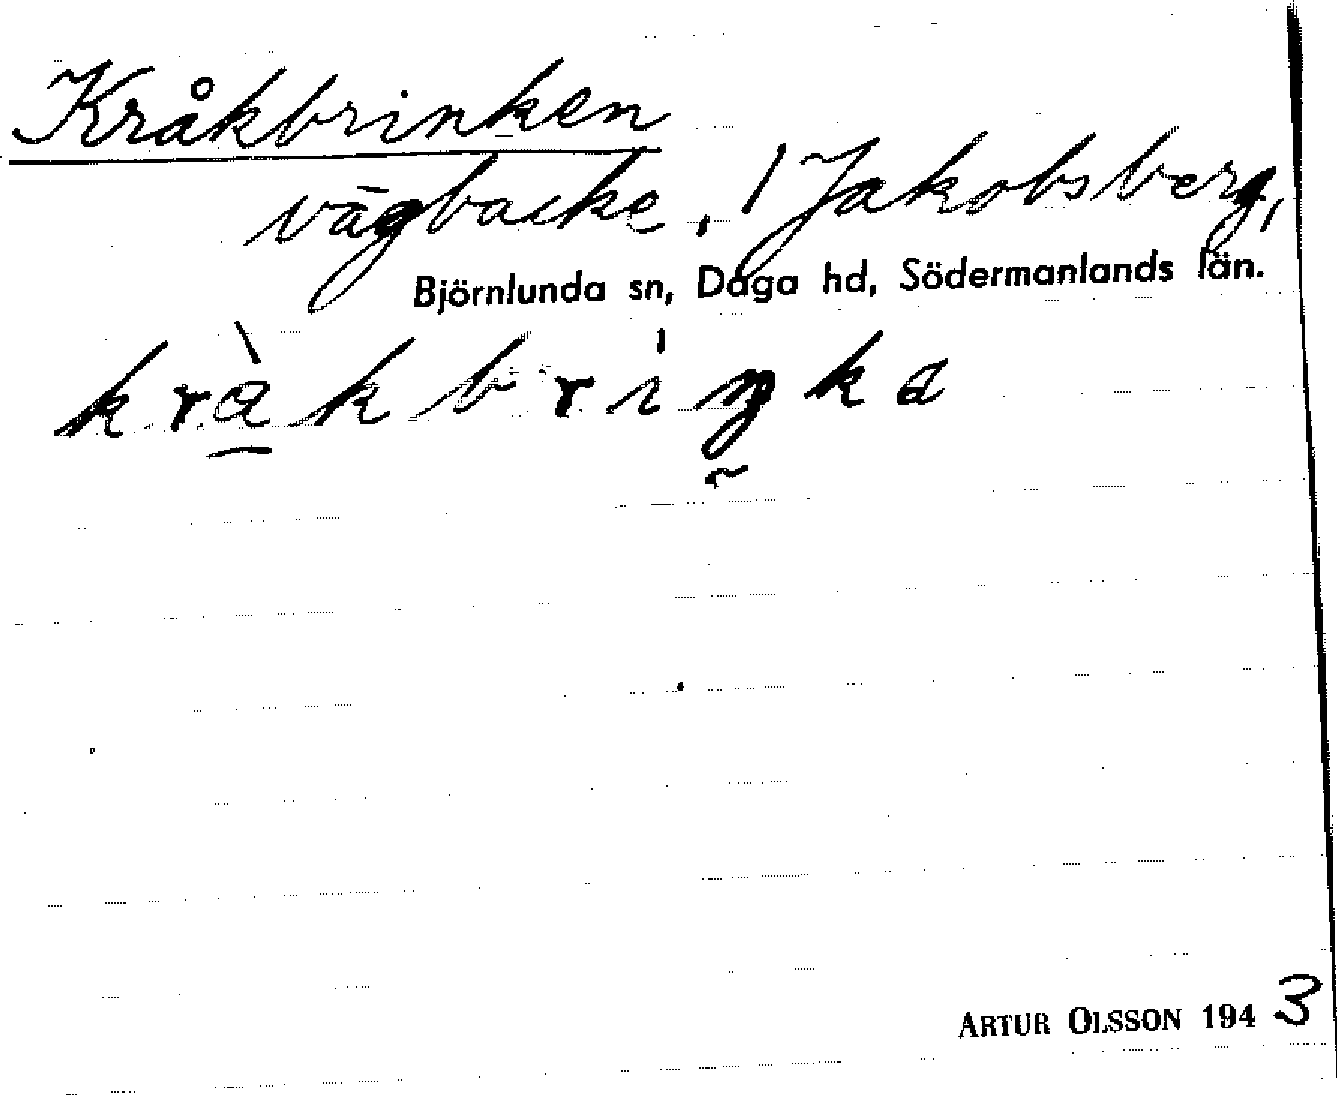 Kråkbrinken
vägbacke, 1 Jakobsberg,
Björnlunda sn, Daga hd, Södermanlands län.
kràkbriŋka
ARTUR OLSSON 1943